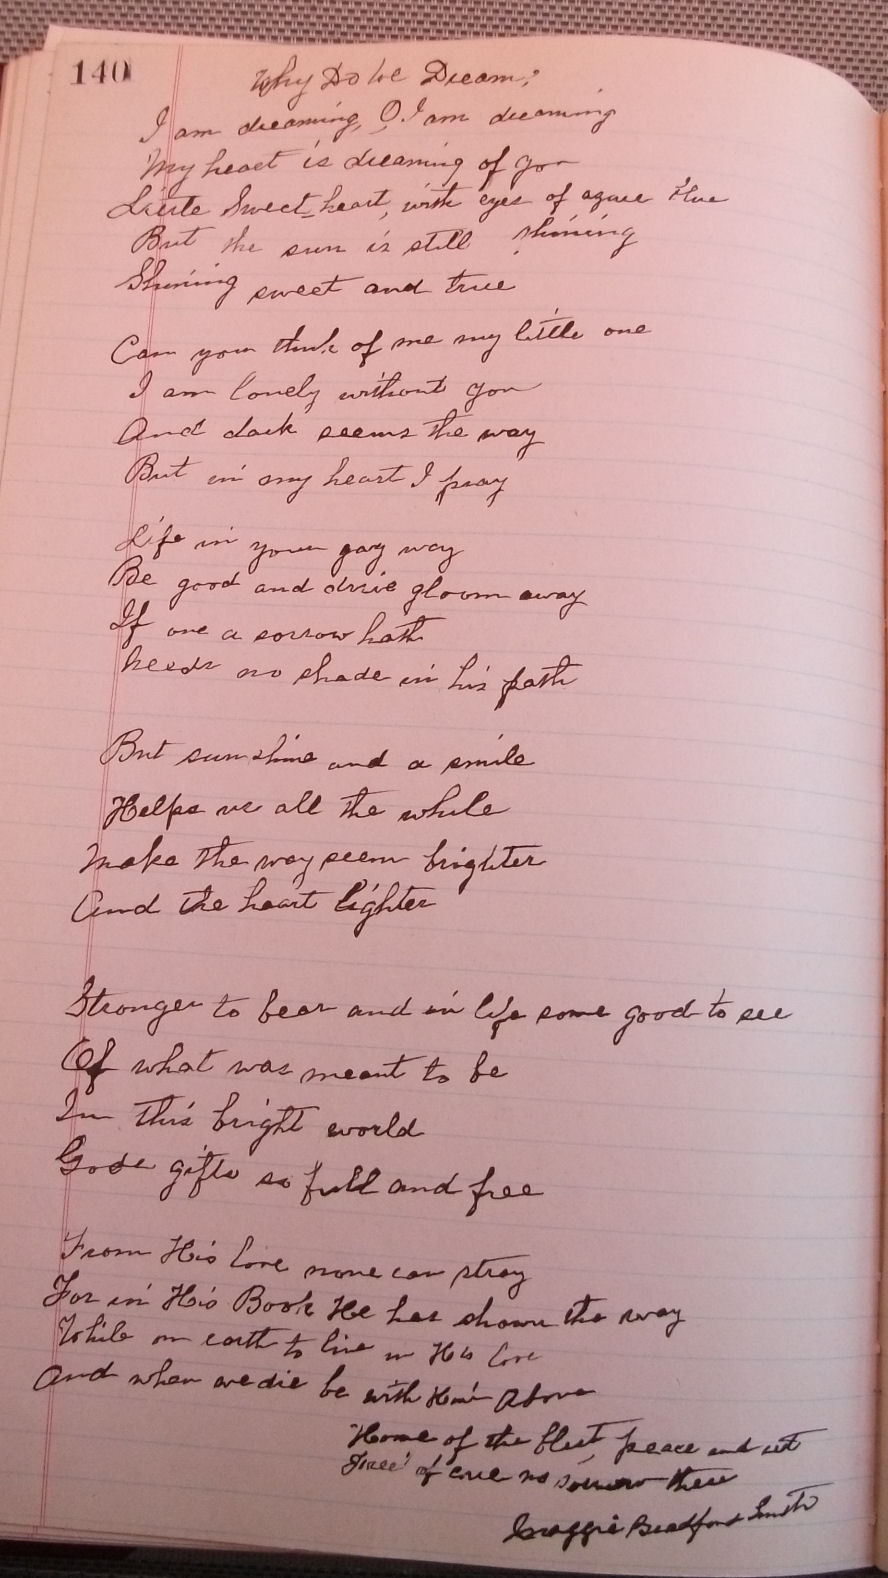 140
Why Do We Dream?
I am dreaming, O I am dreaming
My heart is dreaming of you
Little Sweet-heart, with eyes of azure blue
But the sun is still shining
Shining sweet and true
Can you think of me my little one
I am lonely without you
And dark seems the way
But in my heart I pray
Life in your gay way
Be good and drive gloom away
If one a sorrow hath
needs no shade in his path
But sunshine and a smile
Helps us all the while
Make the way seem brighter
And the heart lighter
Stronger to bear and in life some good to see
Of what was meant to be
In this bright world
Gods gifts so full and free
From His love none can stray
For in His Book He has shown the way
While on earth to live in His love
And when we die be with Him Above
Home of the blest, peace and rest
Free of care no sorrow there
Maggie Bradford Smith